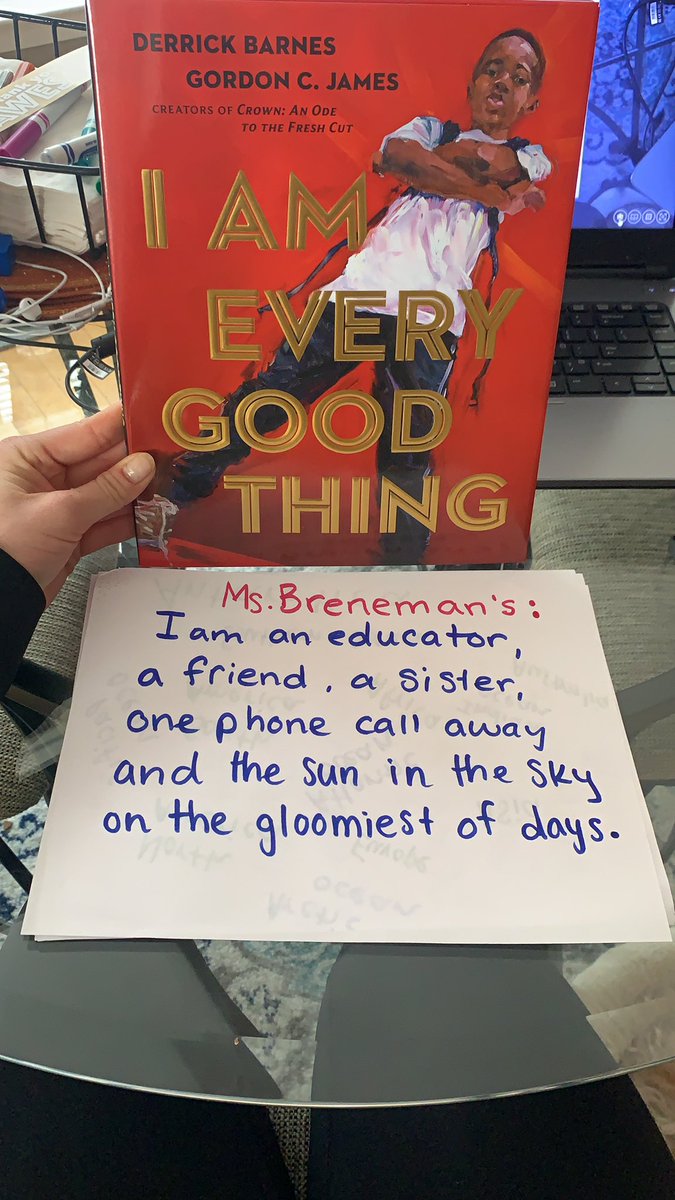 DERRICK BARNES
GORDON C. JAMES
CREATORS OF CROWN: AN ODE
TO THE FRESH CUT
I AM
EVERY
GOOD
THING
Ms. Breneman's:
I am an educator,
a friend, a sister,
one phone call away
and the sun in the sky
on the gloomiest of days.